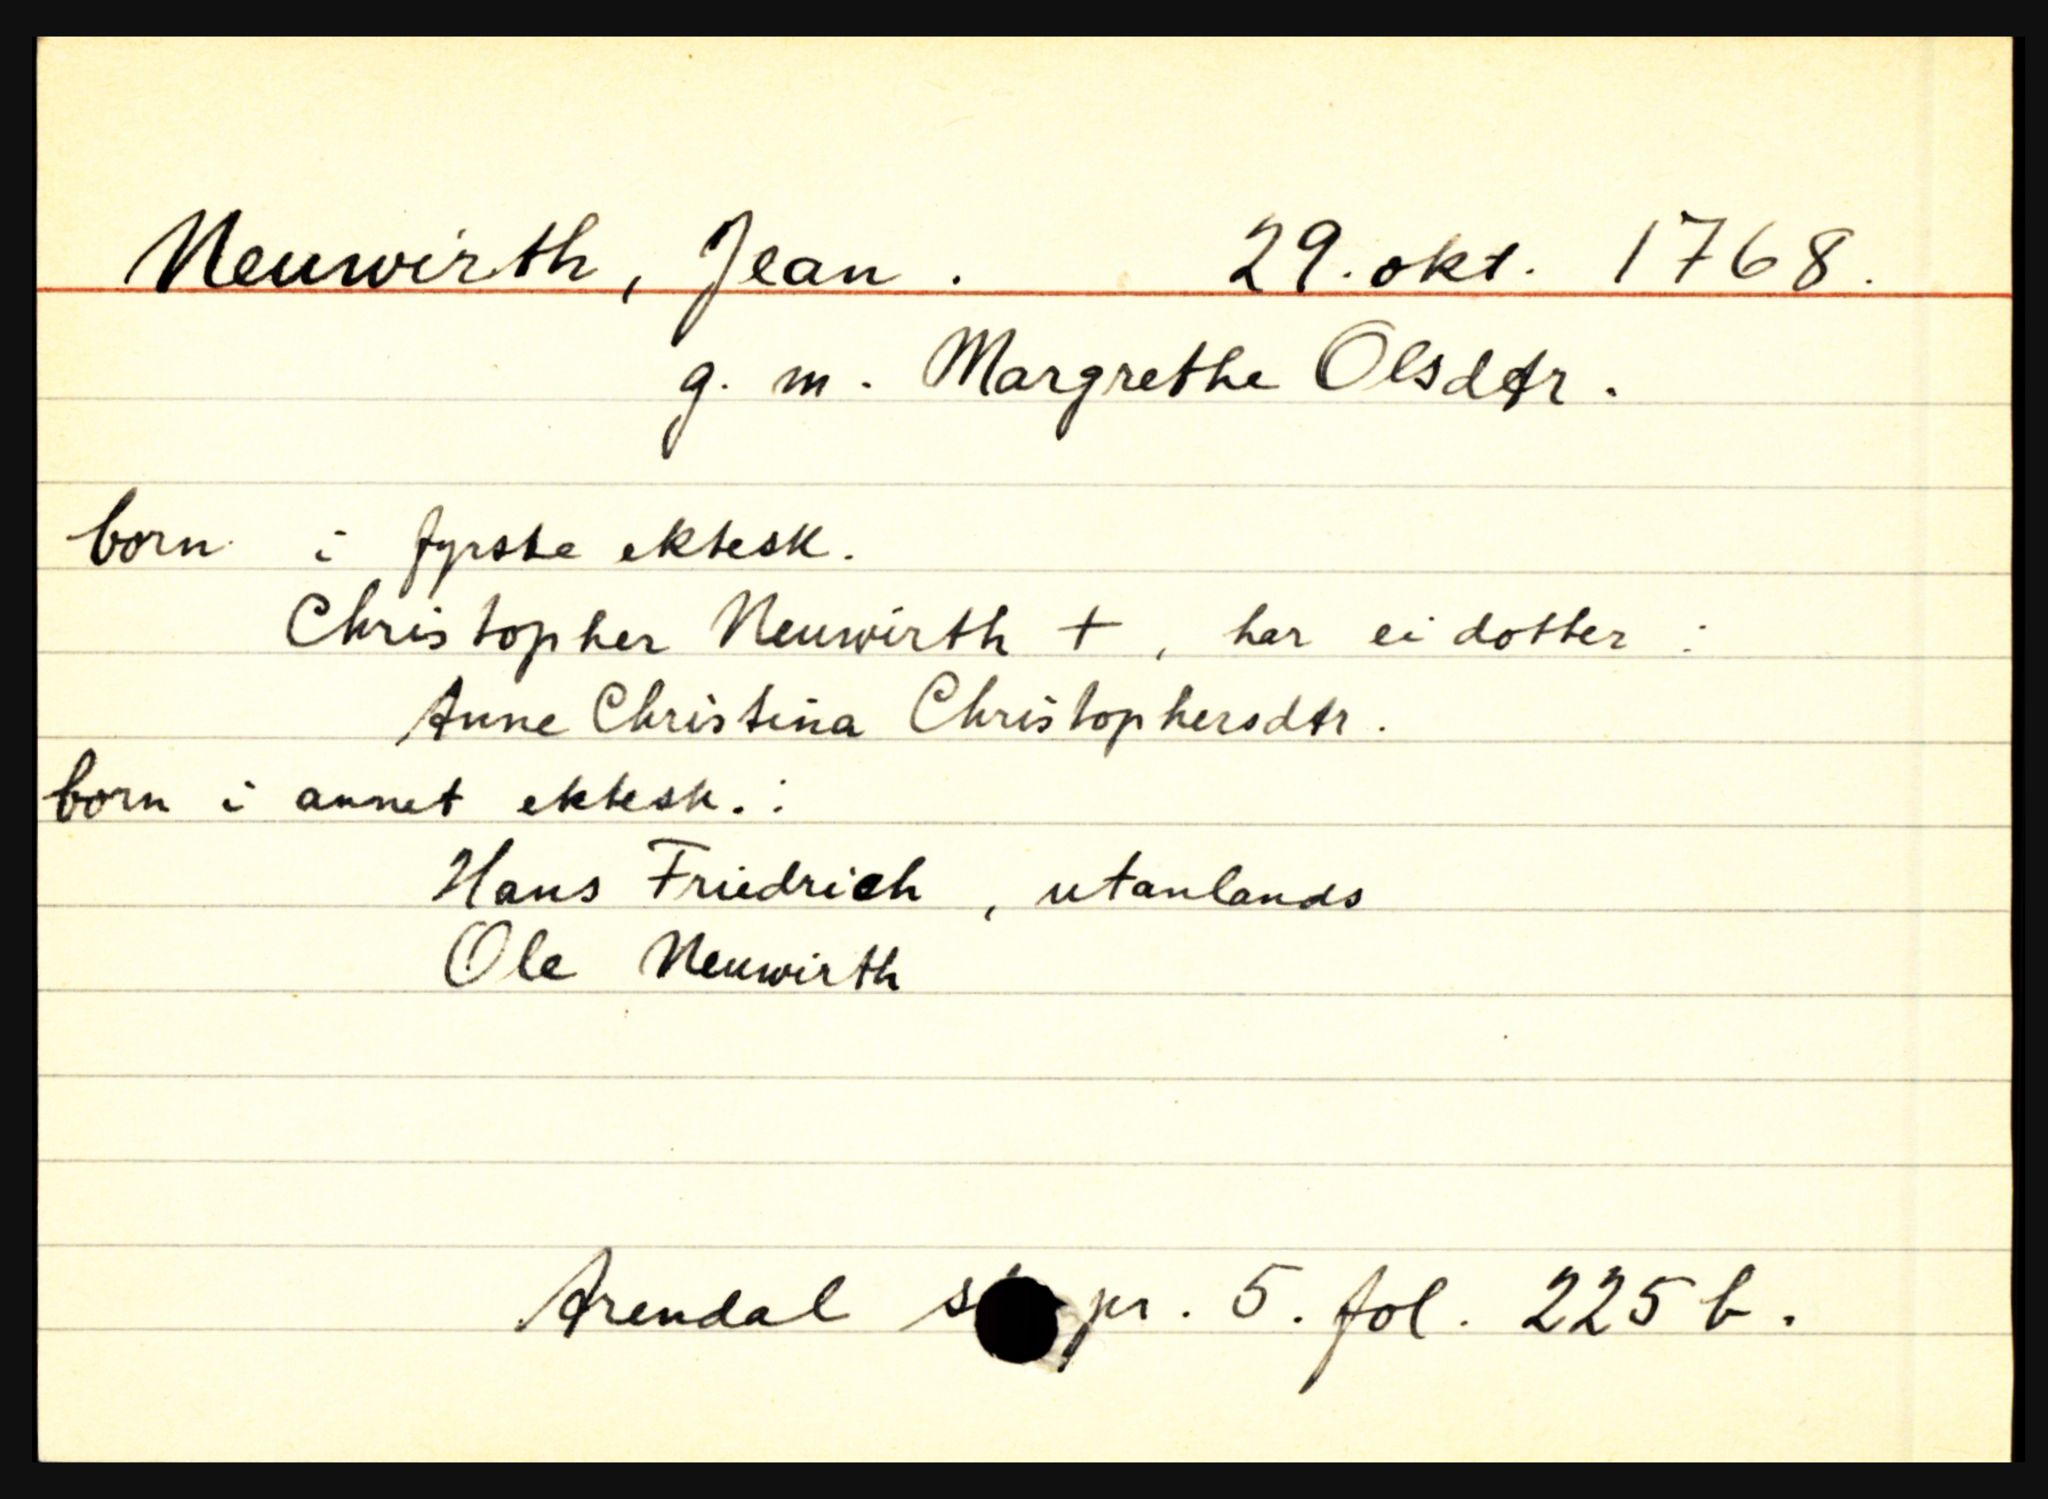 Neuwirth, Jean. 29. okt. 1768.
g. m. Margrethe Olsdtr.
born i fyrste ektesk.
Christopher Neuwirth +, har ei dotter:
Anne Christina Christophersdtr.
born i annet ektesk.:
Hans Friedrich, utanlands
Ole Neuwirth
Arendal pr. 5. fol. 225 b.